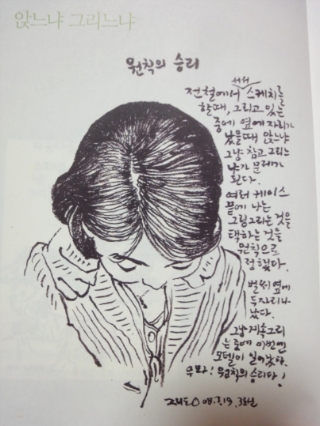 앉느냐 그리느냐
원칙의 승리
서서
전철에서 스케치를
할때, 그리고 있는
중에 옆에 자리가
났을때, 앉느냐
그냥 참고 그리느
냐가 문제가
된다.
여러 케이스
끝에 나는
그림그리는 것을
택하는 것을
원칙으로
정했다.
벌써 옆에
두자리나
났다.
그냥 계속 그리
는 중에 이번엔
모델이 일어났다.
우와! 원칙의 승리다!
08.3.19. 3호선